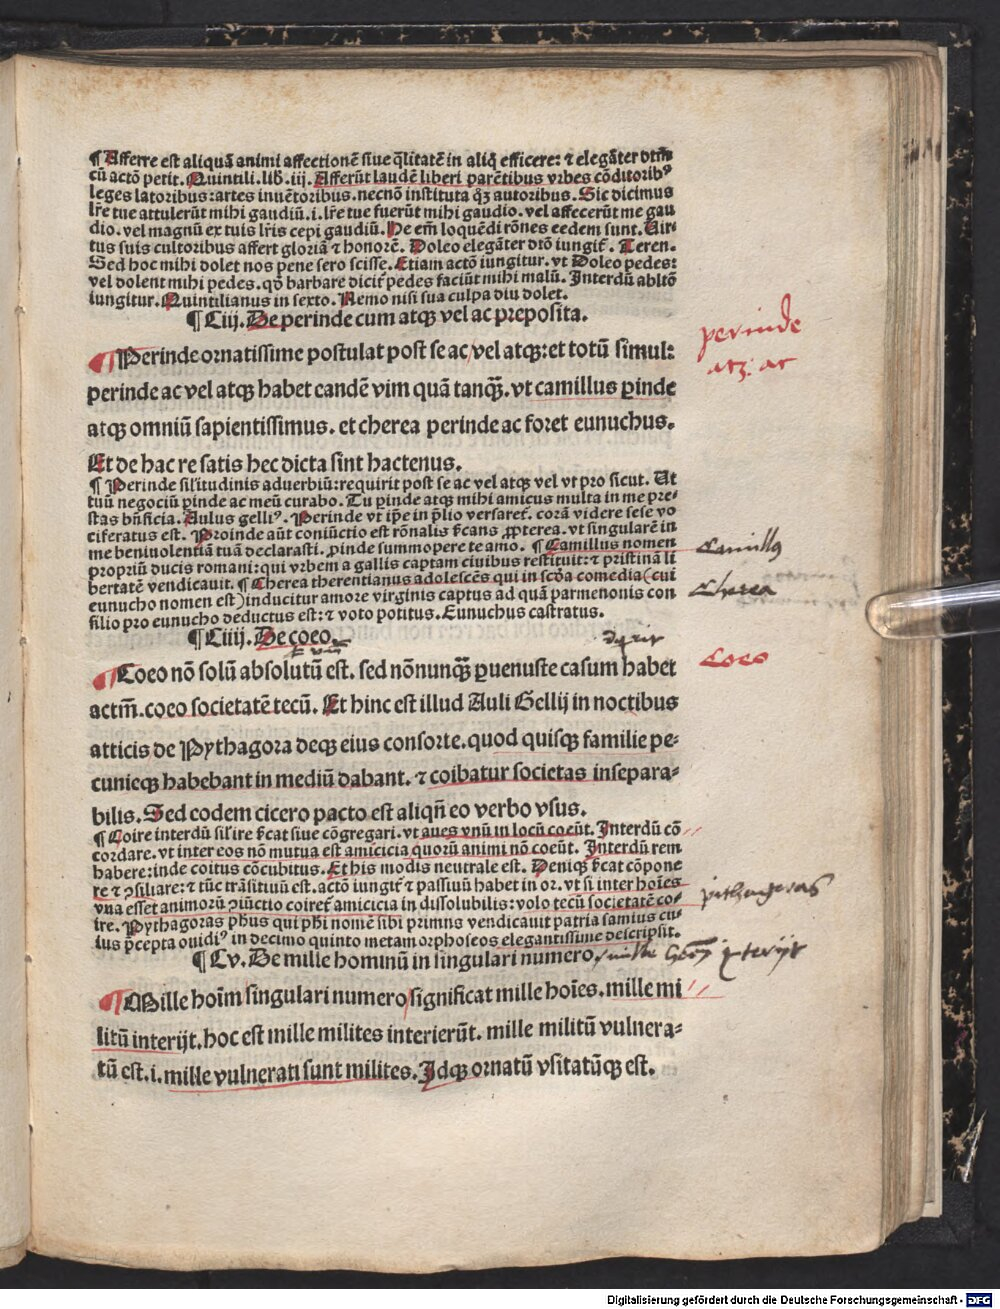 ¶ Afferre est aliquā animi affectionē siue q̄litatē in aliq̄ efficere: ⁊ elegāter dtm̄
cū actō petit. Quintili. lib. iij. Afferūt laudē liberi parētibus vrbes cōditoribꝰ
leges latoribus: artes inuētoribus. necnō instituta qꝫ autoribus. Sic dicimus
lr̄e tue attulerūt mihi gaudiū. i. lr̄e tue fuerūt mihi gaudio. vel affecerūt me gau
dio. vel magnū ex tuis lr̄is cepi gaudiū. He em̄ loquēdi rōnes eedem sunt. Uir-
tus suis cultoribus affert gloriā ⁊ honorē. Doleo elegāter dtō iungit᷑. Teren.
Sed hoc mihi dolet nos pene sero scisse. Etiam actō iungitur. vt Doleo pedes:
vel dolent mihi pedes. qd̄ barbare dicit᷑ pedes faciūt mihi malū. Interdū abltō
iungitur. Quintilianus in sexto. Nemo nisi sua culpa diu dolet.
¶ Ciij. De perinde cum atqꝫ vel ac preposita.
¶ Perinde ornatissime postulat post se ac vel atqꝫ: et totū simul:
perinde ac vel atqꝫ habet candē vim quā tanqꝫ̄. vt camillus ꝑinde
atqꝫ omniū sapientissimus. et cherea perinde ac foret eunuchus.
Et de hac re satis hec dicta sint hactenus.
¶ Perinde sil'itudinis aduerbiū: requirit post se ac vel atqꝫ vel vt pro sicut. Ut
tuū negociū ꝑinde ac meū curabo. Tu ꝑinde atqꝫ mihi amicus multa in me pre-
stas bn̄ficia. Aulus gelliꝰ. Perinde vt ip̄e in p̄lio versaret᷑. corā videre sese vo
ciferatus est. Proinde aūt coniūctio est rōnalis s̄cans ꝓpterea. vt singularē in
me beniuolentiā tuā declarasti. ꝓinde summopere te amo. ¶ Camillus nomen
propriū ducis romani: qui vrbem a gallis captam ciuibus restituit: ⁊ pristinā li
bertatē vendicauit. ¶ Cherea therentianus adolescēs qui in scd̄a comedia (cui
eunucho nomen est) inducitur amore virginis captus ad quā parmenonis con
silio pro eunucho deductus est: ⁊ voto potitus. Eunuchus castratus.
¶ Ciiij. De coeo.
¶ Coeo nō solū absolutū est. sed nōnunqꝫ̄ ꝑuenuste casum habet
actm̄. coeo societatē tecū. Et hinc est illud Auli Gellij in noctibus
atticis de Pythagora deqꝫ eius consorte. quod quisqꝫ familie pe-
cunieqꝫ habebant in mediū dabant. ⁊ coibatur societas insepara-
bilis. Sed eodem cicero pacto est aliqn̄ eo verbo vsus.
¶ Coire interdū sil'ire s̄cat siue cōgregari. vt aues vnū in locū coeūt. Interdū cō
cordare. vt inter eos nō mutua est amicicia quorū animi nō coeūt. Interdū rem
habere: inde coitus cōcubitus. Et his modis neutrale est. Deniqꝫ s̄cat cōpone
re ⁊ ꝯsiliare: ⁊ tūc trāsitiuū est. actō iungit᷑ ⁊ passiuū habet in or. vt si inter hoīes
vna esset animorū ꝯiūctio coiret᷑ amicicia in dissolubilis: volo tecū societatē co-
ire. Pythagoras ph̄us qui ph̄i nomē sibi primus vendicauit patria samius cu-
ius p̄cepta ouidiꝰ in decimo quinto metamorphoseos elegantissime descripsit.
¶ Cv. De mille hominū in singulari numero.
¶ Mille hoīm singulari numero significat mille hoīes. mille mi
litū interijt. hoc est mille milites interierūt. mille militū vulnera-
tū est. i. mille vulnerati sunt milites. Idqꝫ ornatū vsitatūqꝫ est.
perinde
atqꝫ. ac
Camillꝰ
Cherea
Coeo
pithagoras
Digitalisierung gefördert durch die Deutsche Forschungsgemeinschaft - DFG